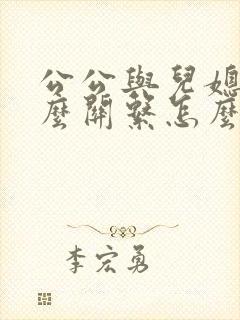 公公與兒媳
麼關繫怎麼
李宏勇